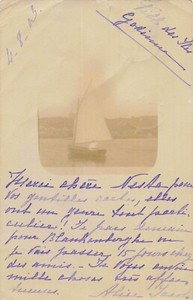 Villa des Iles
Godinne
Merci chère Nesha pour
vos gentilles cartes, elles
ont un genre tout parti
culier! Je pars demain
pour Blankenberghe où
je vais passer 15 jours chez
des amis. Je vous ente
mille choses très affec
tueuses.